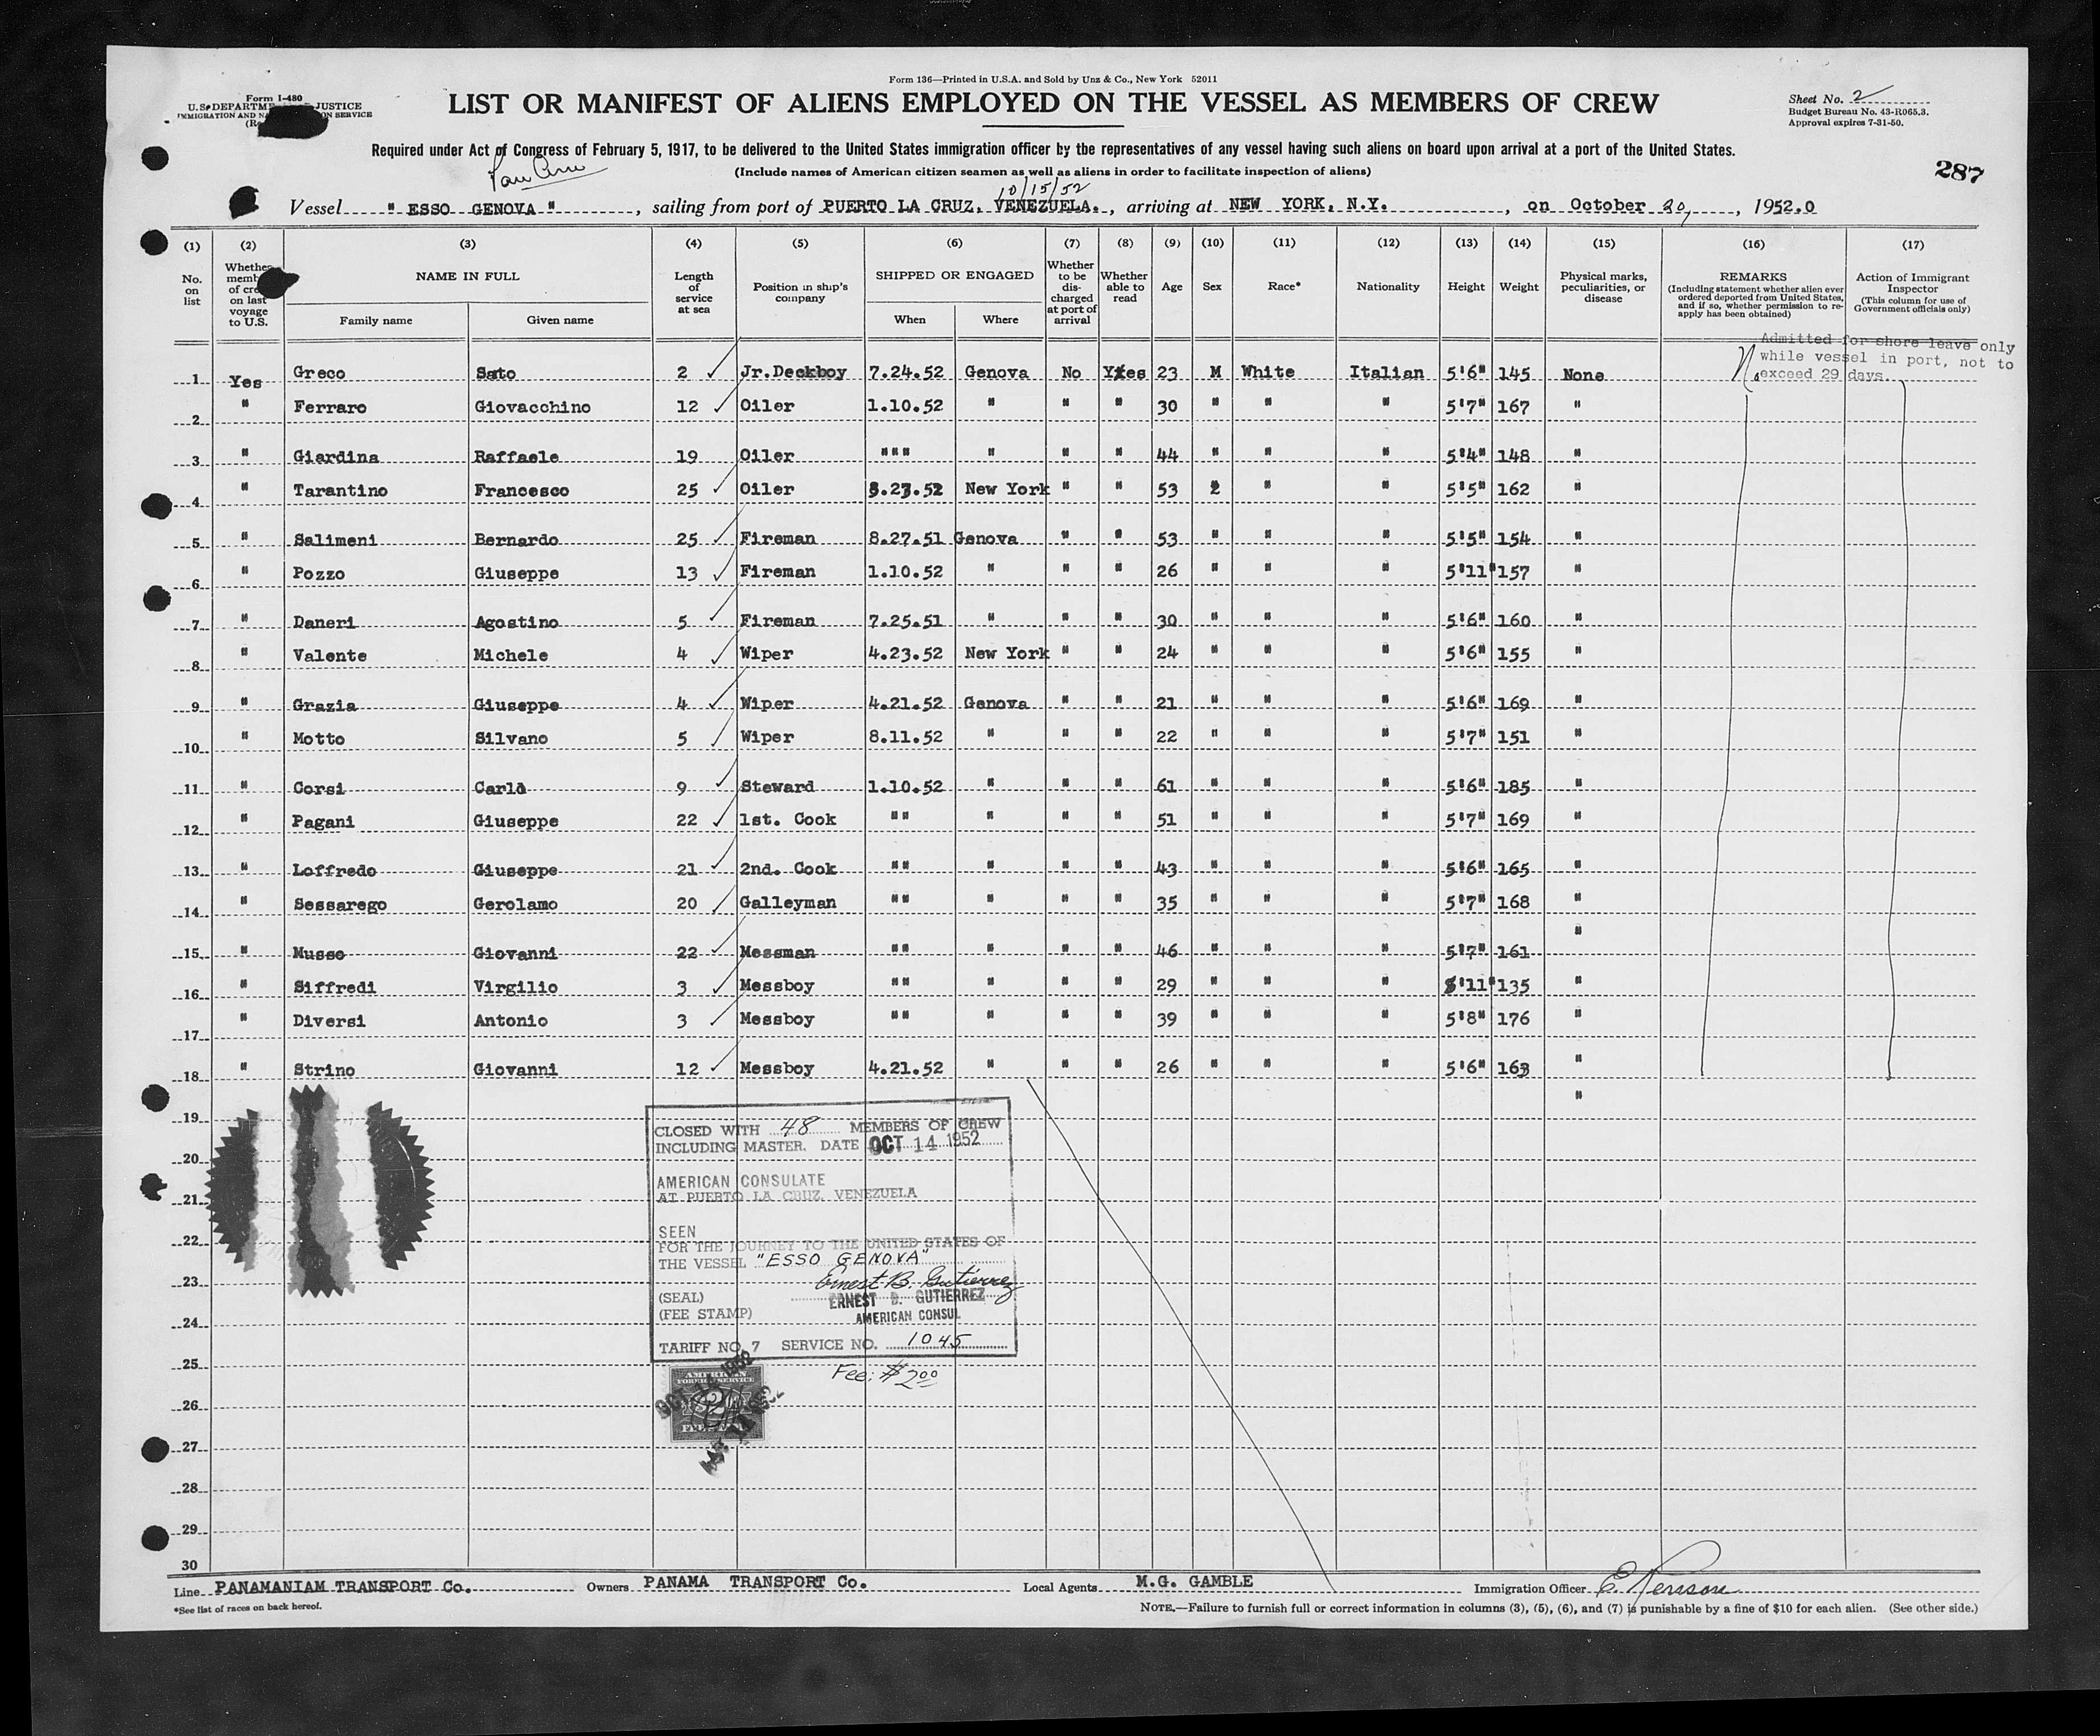 Form 136—Printed in U.S.A. and Sold by Unz & Co., New York 52011
Form I-480
U.S. DEPARTME JUSTICE
IMMIGRATION AND N ON SERVICE
LIST OR MANIFEST OF ALIENS EMPLOYED ON THE VESSEL AS MEMBERS OF CREW
Sheet No. 2
Budget Bureau No. 43-R065.3.
Approval expires 7-31-50.
Required under Act of Congress of February 5, 1917, to be delivered to the United States immigration officer by the representatives of any vessel having such aliens on board upon arrival at a port of the United States.
(Include names of American citizen seamen as well as aliens in order to facilitate inspection of aliens)
287
10/15/52
Vessel " ESSO GENOVA " , sailing from port of PUERTO LA CRUZ, VENEZUELA. , arriving at NEW YORK, N.Y. , on October 20, , 1952.0
(1) (2) (3) (4) (5) (6) (7) (8) (9) (10) (11) (12) (13) (14) (15) (16) (17)
No. on list
Whether memb of cre on last voyage to U.S.
NAME IN FULL
Family name Given name
Length of service at sea
Position in ship's company
SHIPPED OR ENGAGED
When Where
Whether to be discharged at port of arrival
Whether able to read
Age
Sex
Race*
Nationality
Height
Weight
Physical marks, peculiarities, or disease
REMARKS
(Including statement whether alien ever ordered deported from United States, and if so, whether permission to reapply has been obtained)
Action of Immigrant Inspector
(This column for use of Government officials only)
Admitted for shore leave only
while vessel in port, not to
exceed 29 days.
1 Yes Greco Sato 2 ✓ Jr.Deckboy 7.24.52 Genova No Yxes 23 M White Italian 5'6" 145 None
2 " Ferraro Giovacchino 12 ✓ Oiler 1.10.52 " " " 30 " " " 5'7" 167 "
3 " Giardina Raffaele 19 Oiler """ " " " 44 " " " 5'4" 148 "
4 " Tarantino Francesco 25 ✓ Oiler 8.23.52 New York " " 53 " " " 5'5" 162 "
5 " Salimeni Bernardo 25 ✓ Fireman 8.27.51 Genova " " 53 " " " 5'5" 154 "
6 " Pozzo Giuseppe 13 ✓ Fireman 1.10.52 " " " 26 " " " 5'11" 157 "
7 " Daneri Agostino 5 ✓ Fireman 7.25.51 " " " 30 " " " 5'6" 160 "
8 " Valente Michele 4 ✓ Wiper 4.23.52 New York " " 24 " " " 5'6" 155 "
9 " Grazia Giuseppe 4 ✓ Wiper 4.21.52 Genova " " 21 " " " 5'6" 169 "
10 " Motto Silvano 5 ✓ Wiper 8.11.52 " " " 22 " " " 5'7" 151 "
11 " Corsi Carlo 9 ✓ Steward 1.10.52 " " " 61 " " " 5'6" 185 "
12 " Pagani Giuseppe 22 ✓ 1st. Cook "" " " " 51 " " " 5'7" 169 "
13 " Loffredo Giuseppe 21 ✓ 2nd. Cook "" " " " 43 " " " 5'6" 165 "
14 " Sessarego Gerolamo 20 ✓ Galleyman "" " " " 35 " " " 5'7" 168 "
15 " Musso Giovanni 22 ✓ Messman "" " " " 46 " " " 5'7" 161 "
16 " Siffredi Virgilio 3 ✓ Messboy "" " " " 29 " " " 5'11" 135 "
17 " Diversi Antonio 3 ✓ Messboy "" " " " 39 " " " 5'8" 176 "
18 " Strino Giovanni 12 ✓ Messboy 4.21.52 " " " 26 " " " 5'6" 163 "
"
19
20
21
22
23
24
25
26
27
28
29
30
CLOSED WITH 48 MEMBERS OF CREW
INCLUDING MASTER. DATE OCT 14 1952
AMERICAN CONSULATE
AT PUERTO LA CRUZ, VENEZUELA
SEEN
FOR THE JOURNEY TO THE UNITED STATES OF
THE VESSEL "ESSO GENOVA"
Ernest B. Gutierrez
(SEAL) ERNEST B. GUTIERREZ
(FEE STAMP) AMERICAN CONSUL
TARIFF NO. 7 SERVICE NO. 1045
Fee: $2.00
AMERICAN
FOREIGN SERVICE
Line PANAMANIAM TRANSPORT Co. Owners PANAMA TRANSPORT Co. Local Agents M.G. GAMBLE Immigration Officer
*See list of races on back hereof.
NOTE.—Failure to furnish full or correct information in columns (3), (5), (6), and (7) is punishable by a fine of $10 for each alien. (See other side.)